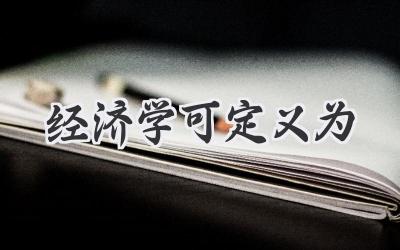 经济学可定义为